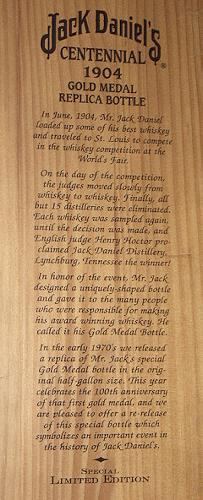 Jack Daniel's®
CENTENNIAL
1904
GOLD MEDAL
REPLICA BOTTLE
In June, 1904, Mr. Jack Daniel
loaded up some of his best whiskey
and traveled to St. Louis to compete
in the whiskey competition at the
World's Fair.
On the day of the competition,
the judges moved slowly from
whiskey to whiskey. Finally, all
but 15 distilleries were eliminated.
Each whiskey was sampled again,
until the decision was made, and
English judge Henry Hoctor pro-
claimed Jack Daniel Distillery,
Lynchburg, Tennessee the winner!
In honor of the event, Mr. Jack
designed a uniquely-shaped bottle
and gave it to the many people
who were responsible for making
his award winning whiskey. He
called it his Gold Medal Bottle.
In the early 1970's we released
a replica of Mr. Jack's special
Gold Medal bottle in the orig-
inal half-gallon size. This year
celebrates the 100th anniversary
of that first gold medal, and we
are pleased to offer a re-release
of this special bottle which
symbolizes an important event in
the history of Jack Daniel's.
SPECIAL
LIMITED EDITION